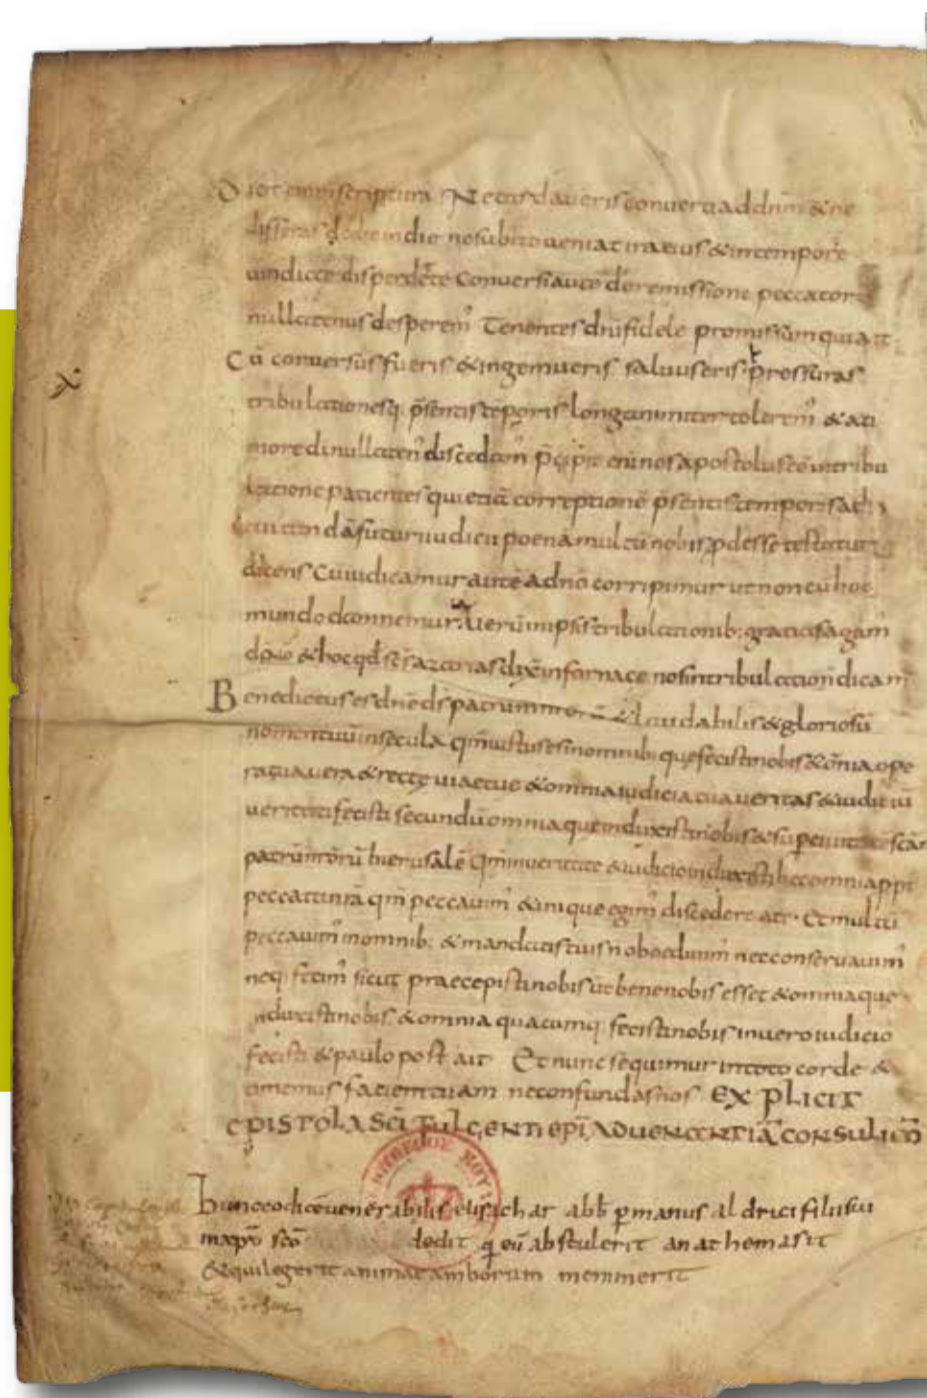 Dicit enim scriptura Ne tardaveris converti ad dnm & ne
differas de die in die ne subito veniat ira eius & in tempore
vindicte disperdat te Conversi autē de remissione peccator
nullatenus desperem' Tenentes dni fidele promissum qui ait
Cū conversus fueris & ingemueris salvus eris pressuras
tribulationesq; p̄sentis tēporis longanimiter tolerem' & a ti
more di nullaten' discedam' enim nos apostolus eē in tribu
latione patientes qui etiā correptionē p̄sentis temporis ad
futuri iudicii poena multū nobis pdesse testatur
dicens Cū iudicamur autē a dnō corripimur ut non cū hoc
mundo damnemur Verū in ipsis tribulationib; gratias agam'
dnō & hoc qd in fornace nos in tribulationi dicam'
Benedictus es dnē ds patrum nrorū & laudabilis & gloriosū
nomen tuū in secula qm̄ iustus es in omnib; que fecisti nobis & om̄ia ope
ra tua vera & rectę viae tue & omnia iudicia tua veritas & iudiciū
veritati fecisti secundū omnia que induxisti nobis & sup civitatē scām
patrū nrōrū hierusalē Qm̄ in veritate & iudicio induxisti hec omnia ppt
peccata nrā qm̄ peccavim' & inique egim' discedere a te Et multū
peccavim' in omnib; & mandatis tuis n̄ oboedivim' nec conservavim'
neq; fecim' sicut praecepisti nobis ut bene nobis esset & omnia que
induxisti nobis & omnia quacumq; fecisti nobis in vero iudicio
fecisti & paulo post ait Et nunc sequimur in toto corde &
timemus faciem tuam ne confundas nos EXPLICIT
EPISTOLA SCI FULGENTII EPI AD VENANTIĀ CONSULĒ
hunc codicē venerabilis elisichar abb p manus aldrici filii sui
dedit q eū abstulerit anathema sit
& qui legerit anima amborum meminerit